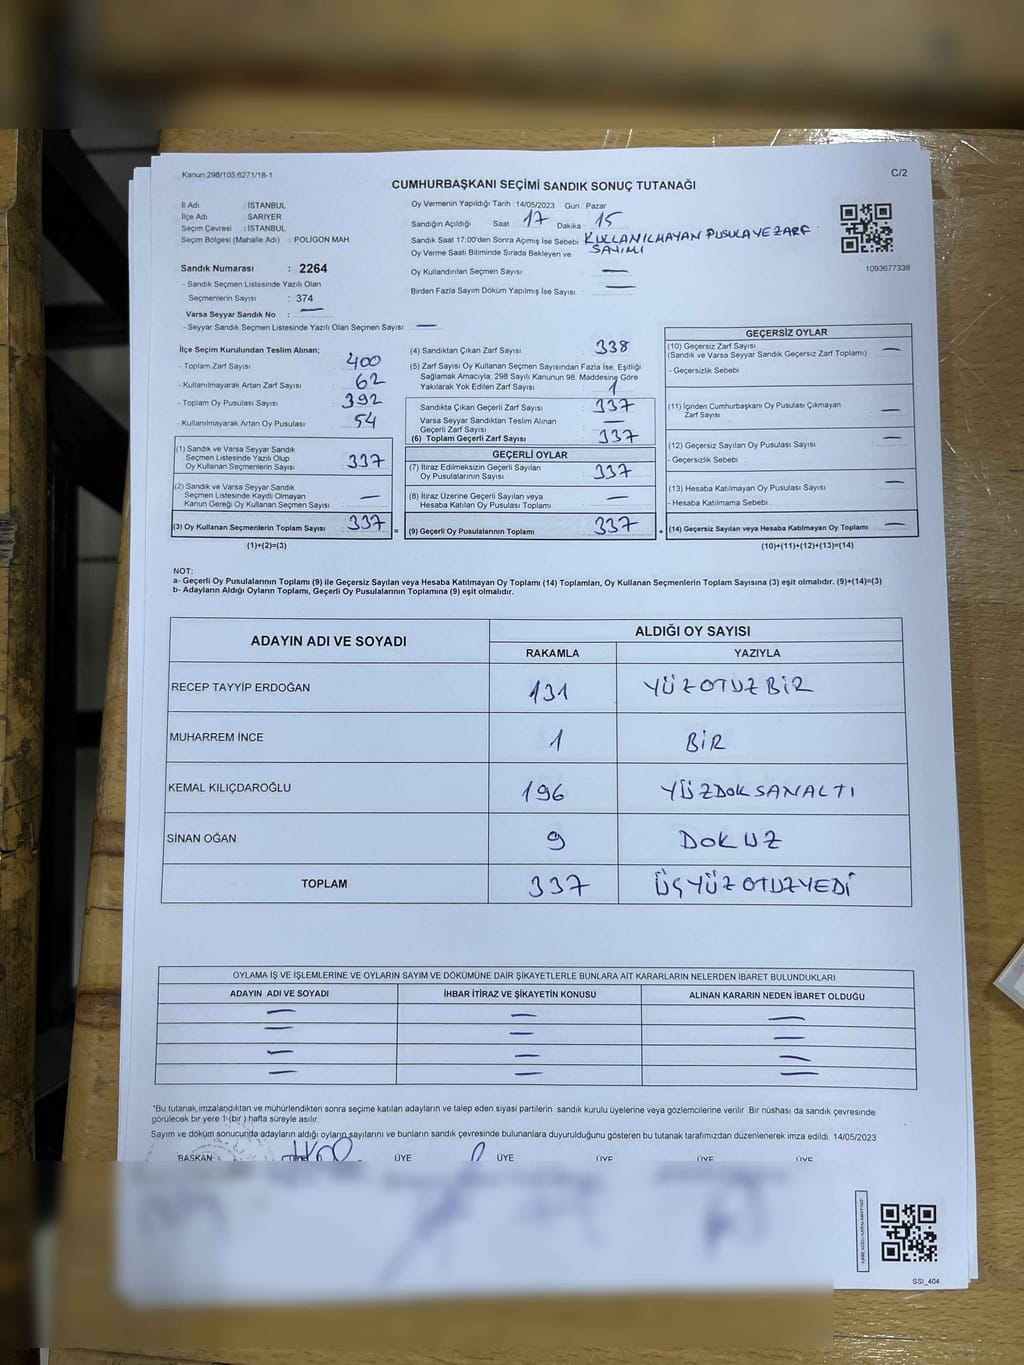 Kanun:298/105,6271/18-1
C/2
CUMHURBAŞKANI SEÇİMİ SANDIK SONUÇ TUTANAĞI
İl Adı : İSTANBUL
İlçe Adı : SARIYER
Seçim Çevresi : İSTANBUL
Seçim Bölgesi (Mahalle Adı) : POLİGON MAH.
Oy Vermenin Yapıldığı Tarih : 14/05/2023 Gün : Pazar
Sandığın Açıldığı Saat : 17 Dakika : 15
Sandık Saat 17:00'den Sonra Açımış İse Sebebi KULLANILMAYAN PUSULA VE ZARF SAYIMI
Oy Verme Saati Bitiminde Sırada Bekleyen ve
Oy Kullandırılan Seçmen Sayısı : —
Birden Fazla Sayım Döküm Yapılmış İse Sayısı : —
1093677338
Sandık Numarası : 2264
- Sandık Seçmen Listesinde Yazılı Olan
Seçmenlerin Sayısı : 374
Varsa Seyyar Sandık No : —
- Seyyar Sandık Seçmen Listesinde Yazılı Olan Seçmen Sayısı: —
İlçe Seçim Kurulundan Teslim Alınan;
- Toplam Zarf Sayısı : 400
- Kullanılmayarak Artan Zarf Sayısı : 62
- Toplam Oy Pusulası Sayısı : 392
- Kullanılmayarak Artan Oy Pusulası : 54
(1) Sandık ve Varsa Seyyar Sandık
Seçmen Listesinde Yazılı Olup
Oy Kullanan Seçmenlerin Sayısı : 337
(2) Sandık ve Varsa Seyyar Sandık
Seçmen Listesinde Kayıtlı Olmayan
Kanun Gereği Oy Kullanan Seçmen Sayısı : —
(3) Oy Kullanan Seçmenlerin Toplam Sayısı : 337 =
(1)+(2)=(3)
(4) Sandıktan Çıkan Zarf Sayısı : 338
(5) Zarf Sayısı Oy Kullanan Seçmen Sayısından Fazla İse, Eşitliği
Sağlamak Amacıyla; 298 Sayılı Kanunun 98. Maddesine Göre
Yakılarak Yok Edilen Zarf Sayısı : 1
Sandıkta Çıkan Geçerli Zarf Sayısı : 337
Varsa Seyyar Sandıktan Teslim Alınan
Geçerli Zarf Sayısı : —
(6) Toplam Geçerli Zarf Sayısı : 337
GEÇERLİ OYLAR
(7) İtiraz Edilmeksizin Geçerli Sayılan
Oy Pusulalarının Sayısı : 337
(8) İtiraz Üzerine Geçerli Sayılan veya
Hesaba Katılan Oy Pusulası Toplamı : —
(9) Geçerli Oy Pusulalarının Toplamı : 337 +
GEÇERSİZ OYLAR
(10) Geçersiz Zarf Sayısı
(Sandık ve Varsa Seyyar Sandık Geçersiz Zarf Toplamı) : —
- Geçersizlik Sebebi :
(11) İçinden Cumhurbaşkanı Oy Pusulası Çıkmayan
Zarf Sayısı : —
(12) Geçersiz Sayılan Oy Pusulası Sayısı : —
- Geçersizlik Sebebi :
(13) Hesaba Katılmayan Oy Pusulası Sayısı : —
- Hesaba Katılmama Sebebi :
(14) Geçersiz Sayılan veya Hesaba Katılmayan Oy Toplamı : —
(10)+(11)+(12)+(13)=(14)
NOT:
a- Geçerli Oy Pusulalarının Toplamı (9) ile Geçersiz Sayılan veya Hesaba Katılmayan Oy Toplamı (14) Toplamları, Oy Kullanan Seçmenlerin Toplam Sayısına (3) eşit olmalıdır. (9)+(14)=(3)
b- Adayların Aldığı Oyların Toplamı, Geçerli Oy Pusulalarının Toplamına (9) eşit olmalıdır.
ADAYIN ADI VE SOYADI ALDIĞI OY SAYISI
RAKAMLA YAZIYLA
RECEP TAYYİP ERDOĞAN 131 YÜZOTUZBİR
MUHARREM İNCE 1 BİR
KEMAL KILIÇDAROĞLU 196 YÜZDOKSANALTI
SİNAN OĞAN 9 DOKUZ
TOPLAM 337 ÜÇYÜZOTUZYEDİ
OYLAMA İŞ VE İŞLEMLERİNE VE OYLARIN SAYIM VE DÖKÜMÜNE DAİR ŞİKAYETLERLE BUNLARA AİT KARARLARIN NELERDEN İBARET BULUNDUKLARI
ADAYIN ADI VE SOYADI İHBAR İTİRAZ VE ŞİKAYETİN KONUSU ALINAN KARARIN NEDEN İBARET OLDUĞU
— — —
— — —
— — —
— — —
*Bu tutanak imzalandıktan ve mühürlendikten sonra seçime katılan adayların ve talep eden siyasi partilerin sandık kurulu üyelerine veya gözlemcilerine verilir. Bir nüshası da sandık çevresinde
görülecek bir yere 1 (bir) hafta süreyle asılır.
Sayım ve döküm sonucunda adayların aldığı oyların sayılarını ve bunların sandık çevresinde bulunanlara duyurulduğunu gösteren bu tutanak tarafımızdan düzenlenerek imza edildi. 14/05/2023
BAŞKAN ÜYE ÜYE ÜYE ÜYE ÜYE
SSI_404